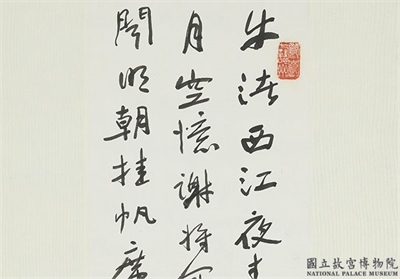 牛渚西江夜青
月空憶謝將軍
聞明朝挂帆席
國立故宮博物院
NATIONAL PALACE MUSEUM